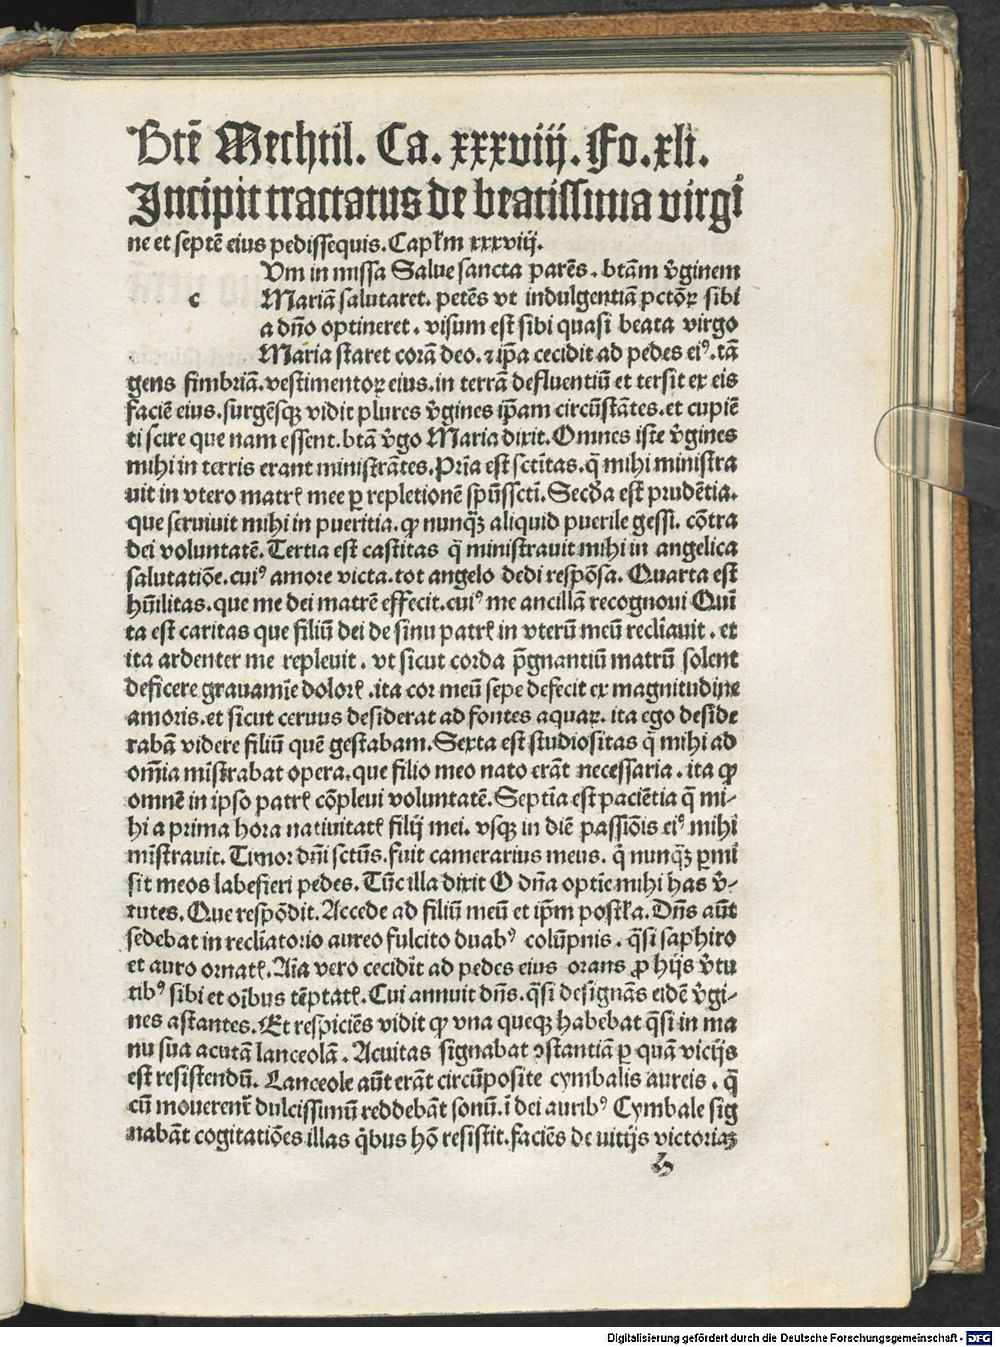 Btē Mechtil. Ca. xxxviij. Fo. xli.
Incipit tractatus de beatissima virgi
ne et septē eius pedissequis. Capłm xxxviij.
Vm in missa Salue sancta parēs. btām v̄ginem
c Mariā salutaret. petēs vt indulgentiā pctōꝝ sibi
a dn̄o optineret. visum est sibi quasi beata virgo
Maria staret corā deo. ⁊ ip̄a cecidit ad pedes eiꝰ. tā
gens fimbriā. vestimentoꝝ eius. in terrā defluentiū et tersit ex eis
faciē eius. surgēsqꝫ vidit plures v̄gines ip̄am circūstātes. et cupiē
ti scire que nam essent. btā v̄go Maria dixit. Omnes iste v̄gines
mihi in terris erant ministrātes. Prīa est sctītas. q̄ mihi ministra
uit in vtero matrꝭ mee ꝑ repletionē spūssctī. Secūda est prudētia.
que seruiuit mihi in pueritia. ꝙ nunqꝫ aliquid puerile gessi. cōtra
dei voluntatē. Tertia est castitas q̄ ministrauit mihi in angelica
salutatiōe. cuiꝰ amore victa. tot angelo dedi respōsa. Quarta est
hūilitas. que me dei matrē effecit. cuiꝰ me ancillā recognoui Quī
ta est caritas que filiū dei de sinu patrꝭ in vterū meū reclīauit. et
ita ardenter me repleuit. vt sicut corda p̄gnantiū matrū solent
deficere grauamīe dolorꝭ. ita cor meū sepe defecit ex magnitudine
amoris. et sicut ceruus desiderat ad fontes aquaꝝ. ita ego deside
rabā videre filiū quē gestabam. Sexta est studiositas q̄ mihi ad
om̄ia mīstrabat opera. que filio meo nato erāt necessaria. ita ꝙ
omnē in ipso patrꝭ cōpleui voluntatē. Septīa est paciētia q̄ mi-
hi a prima hora natiuitatꝭ filij mei. vsqꝫ in diē passiōis eiꝰ mihi
mīstrauit. Timor dn̄i sctūs. fuit camerarius meus. q̄ nunqꝫ ꝑmi
sit meos labefieri pedes. Tūc illa dixit O dn̄a optīe mihi has v̄-
tutes. Que respōdit. Accede ad filiū meū et ip̄m postła. Dn̄s aūt
sedebat in reclīatorio aureo fulcito duabꝰ colūpnis. q̄si saphiro
et auro ornatꝭ. Aīa vero cecidīt ad pedes eius orans ꝓ hijs v̄tu
tibꝰ sibi et oībus tēptatꝭ. Cui annuit dn̄s. q̄si designās eidē v̄gi-
nes astantes. Et respiciēs vidit ꝙ vna queqꝫ habebat q̄si in ma
nu sua acutā lanceolā. Acuitas signabat ꝯstantiā ꝑ quā vicijs
est resistendū. Lanceole aūt erāt circūposite cymbalis aureis. q̄
cū mouerent᷑ dulcissimū reddebāt sonū. ī dei auribꝰ Cymbale sig
nabāt cogitatiōes illas q̄bus hō resistit. faciēs de uitijs victoriaꝫ
h
Digitalisierung gefördert durch die Deutsche Forschungsgemeinschaft - DFG